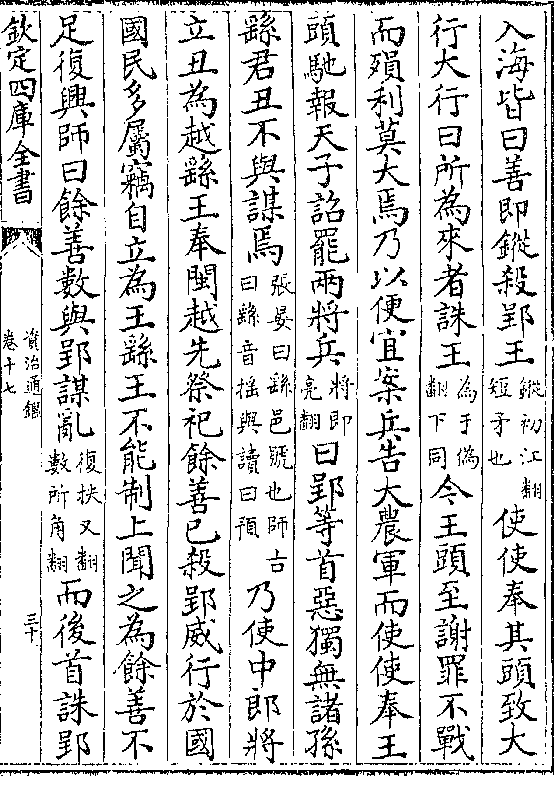 入海皆曰善即鏦殺郢王鏦初江翻短矛也使使奉其頭致大
行大行曰所為來者誅王為于偽翻下同今王頭至謝罪不戰
而殞利莫大焉乃以便宜案兵告大農軍而使使奉王
頭馳報天子詔罷兩將兵將即亮翻曰郢等首惡獨無諸孫
繇君丑不與謀焉張晏曰繇邑號也師古曰繇音揺與讀曰預乃使中郎將
立丑為越繇王奉閩越先祭祀餘善已殺郢威行於國
國民多屬竊自立為王繇王不能制上聞之為餘善不
足復興師曰餘善數與郢謀亂復扶又翻數所角翻而後首誅郢
欽定四庫全書
資治通鑑
卷十七
三十